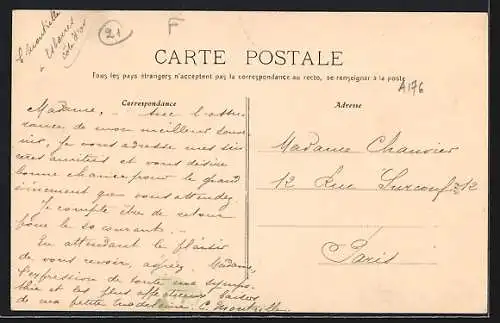 21
F
CARTE POSTALE
Tous les pays étrangers n'acceptent pas la correspondance au recto, se renseigner à la poste
A176
Correspondance
Madame, - Avec l'assu-
rance de mon meilleur souve-
nir, je vous adresse mes sin-
cères amitiés et vous désire
bonne chance pour le grand
évènement que vous attendez.
Je compte être de retour
pour le 30 courant. -
En attendant le plaisir
de vous revoir, agréez, Madame,
l'expression de toute ma sympa-
thie et les plus affectueux baisers
de ma petite
Adresse
Madame Chauvier
12 Rue Surcouf 12
Paris